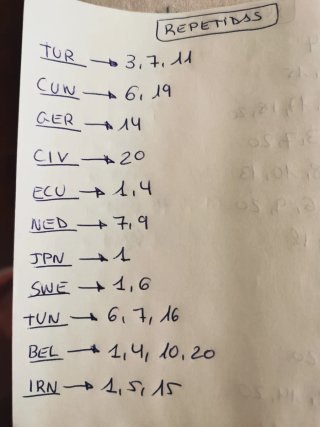 REPETIDAS
TUR → 3, 7, 11
CUW → 6, 19
GER → 14
CIV → 20
ECU → 1, 4
NED → 7, 9
JPN → 1
SWE → 1, 6
TUN → 6, 7, 16
BEL → 1, 4, 10, 20
IRN → 1, 5, 15